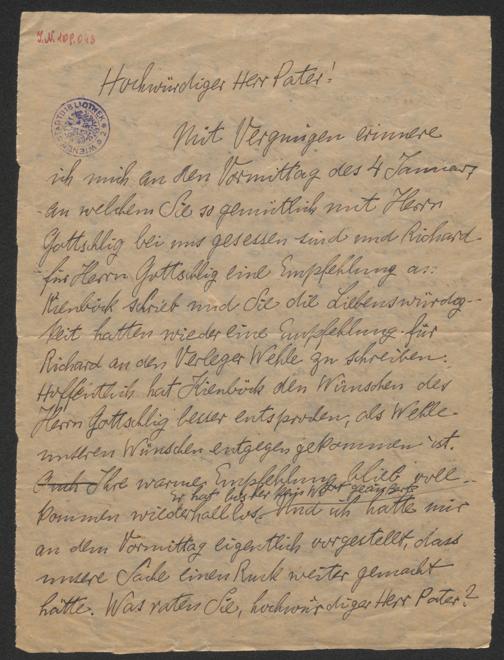 J.N. 109.048
WIENER STADTBIBLIOTHEK
Hochwürdiger Herr Pater!
Mit Vergnügen erinnere
ich mich an den Vormittag des 4 Januar,
an welchem Sie so gemütlich mit Herrn
Gottschlig bei uns gesessen sind und Richard
für Herrn Gottschlig eine Empfehlung an
Kienböck schrieb und Sie die Liebenswürdig-
keit hatten wieder eine Empfehlung für
Richard an den Verleger Wehle zu schreiben.
Hoffentlich hat Kienböck den Wünschen des
Herrn Gottschlig besser entsprochen, als Wehle
unseren Wünschen entgegen gekommen ist.
Auch Ihre warme Empfehlung blieb voll-
Er hat bisher kein Wort geäußert
kommen wiederhallos. Und ich hatte mir
an dem Vormittag eigentlich vorgestellt, dass
unsere Sache einen Ruck weiter gemacht
hätte. Was raten Sie, hochwürdiger Herr Pater?